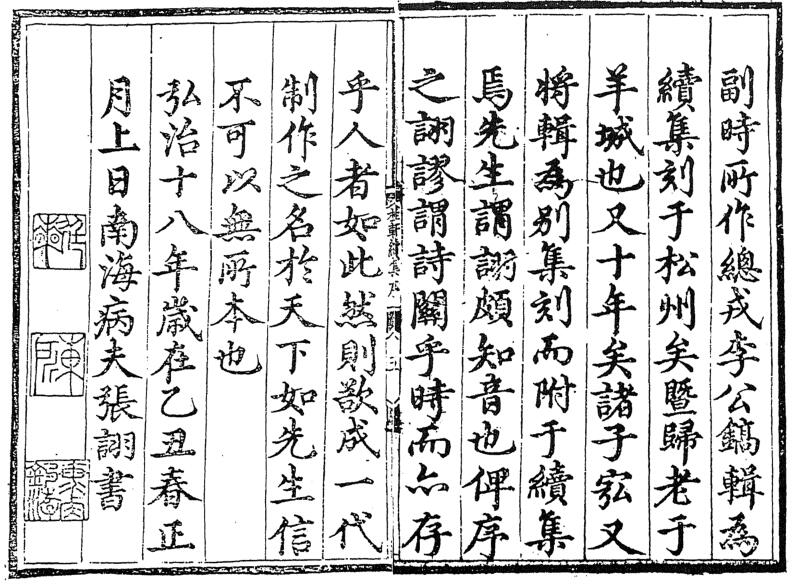 副時所作總戎李公鎬輯為
續集刻于松州矣暨歸老于
羊城也又十年矣諸子宏又
將輯為別集刻而附于續集
焉先生謂詡頗知音也俾序
之詡謬謂詩關乎時而亦存
乎人者如此然則欲成一代
制作之名於天下如先生信
不可以無所本也
弘治十八年歲在乙丑春正
月上日南海病夫張詡書